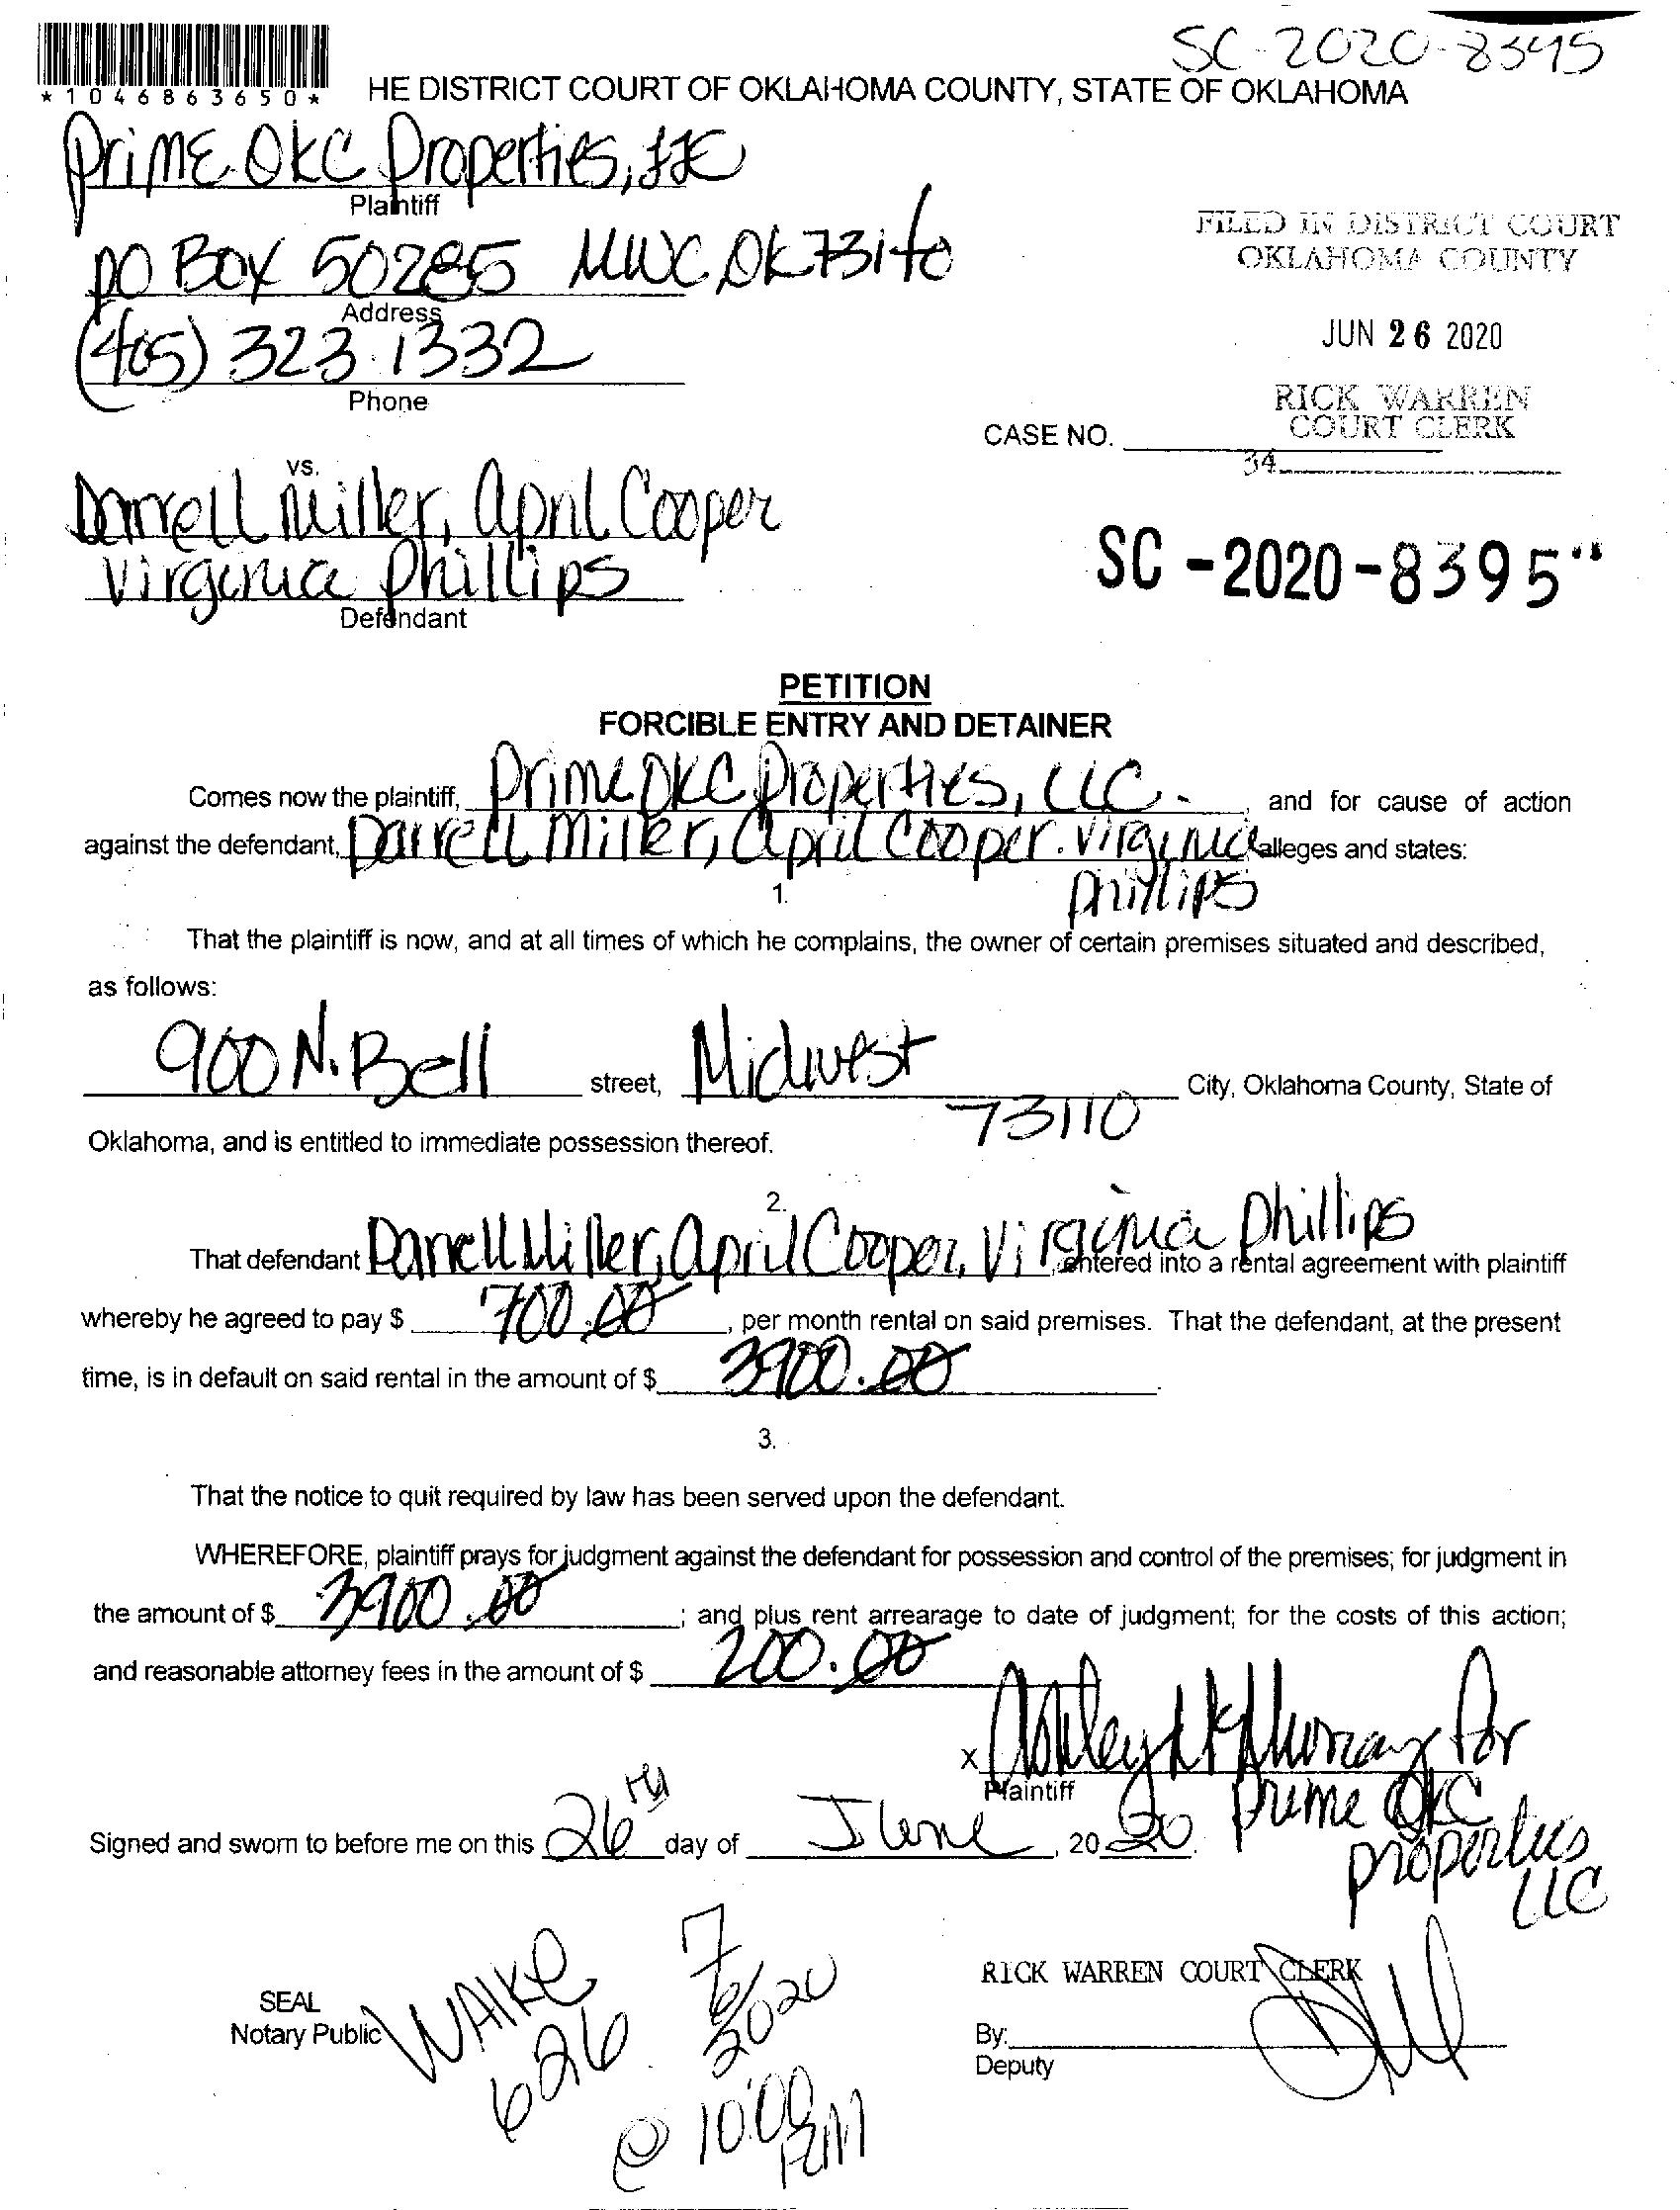 SC-2020-8395
*1046863650*
HE DISTRICT COURT OF OKLAHOMA COUNTY, STATE OF OKLAHOMA
Prime OKC Properties, LLC
Plaintiff
PO BOX 50285 MWC OK 73140
Address
(405) 323 1332
Phone
FILED IN DISTRICT COURT
OKLAHOMA COUNTY
JUN 26 2020
RICK WARREN
COURT CLERK
CASE NO.
34
vs.
Darrell Miller, April Cooper
Virginia Phillips
Defendant
SC -2020-8395
PETITION
FORCIBLE ENTRY AND DETAINER
Comes now the plaintiff, Prime OKC Properties, LLC. , and for cause of action
against the defendant, Darrell Miller, April Cooper. Virginia alleges and states:
Phillips
1.
That the plaintiff is now, and at all times of which he complains, the owner of certain premises situated and described,
as follows:
900 N. Bell street, Midwest City, Oklahoma County, State of
73110
Oklahoma, and is entitled to immediate possession thereof.
2.
That defendant Darrell Miller, April Cooper, Virginia Phillips, entered into a rental agreement with plaintiff
whereby he agreed to pay $ 700.00, per month rental on said premises. That the defendant, at the present
time, is in default on said rental in the amount of $ 3900.00.
3.
That the notice to quit required by law has been served upon the defendant.
WHEREFORE, plaintiff prays for judgment against the defendant for possession and control of the premises; for judgment in
the amount of $ 3900.00; and plus rent arrearage to date of judgment; for the costs of this action;
and reasonable attorney fees in the amount of $ 200.00
X Ashley Murray for
Plaintiff Prime OKC
Properties
LLC
Signed and sworn to before me on this 26th day of June, 2020.
SEAL
Notary Public
WAIKE
626
7/6/2020
@ 10:00
RM
RICK WARREN COURT CLERK
By:
Deputy